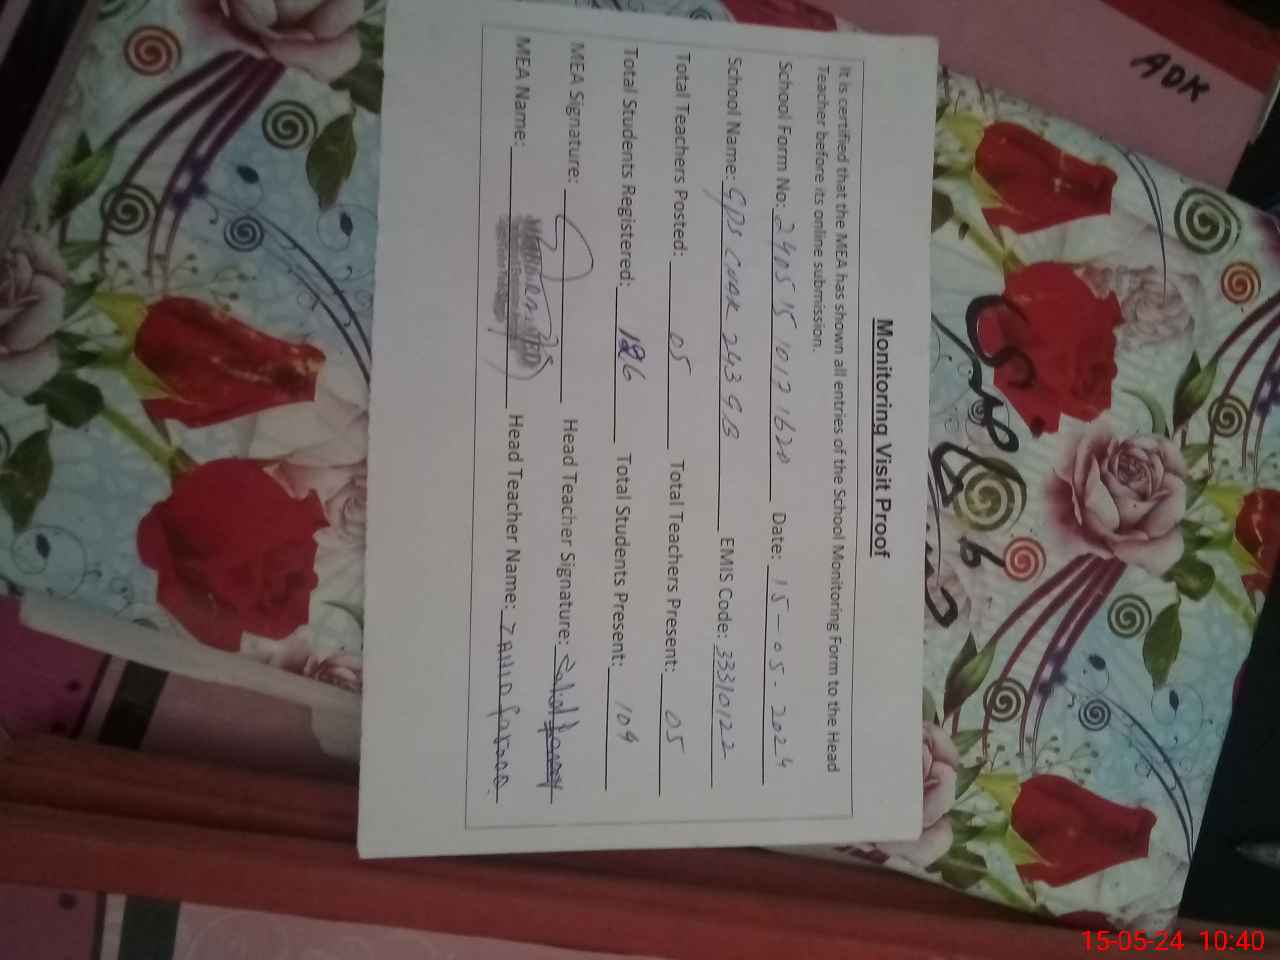 Monitoring Visit Proof
It is certified that the MEA has shown all entries of the School Monitoring Form to the Head
Teacher before its online submission.
School Form No: Date: 15-05-2024
School Name: GPS CHAK 243 GB EMIS Code: 33310122
Total Teachers Posted: 05 Total Teachers Present: 05
Total Students Registered: 126 Total Students Present: 109
MEA Signature: Head Teacher Signature:
MEA Name: Head Teacher Name: ZAHID
ADK
15-05-24 10:40